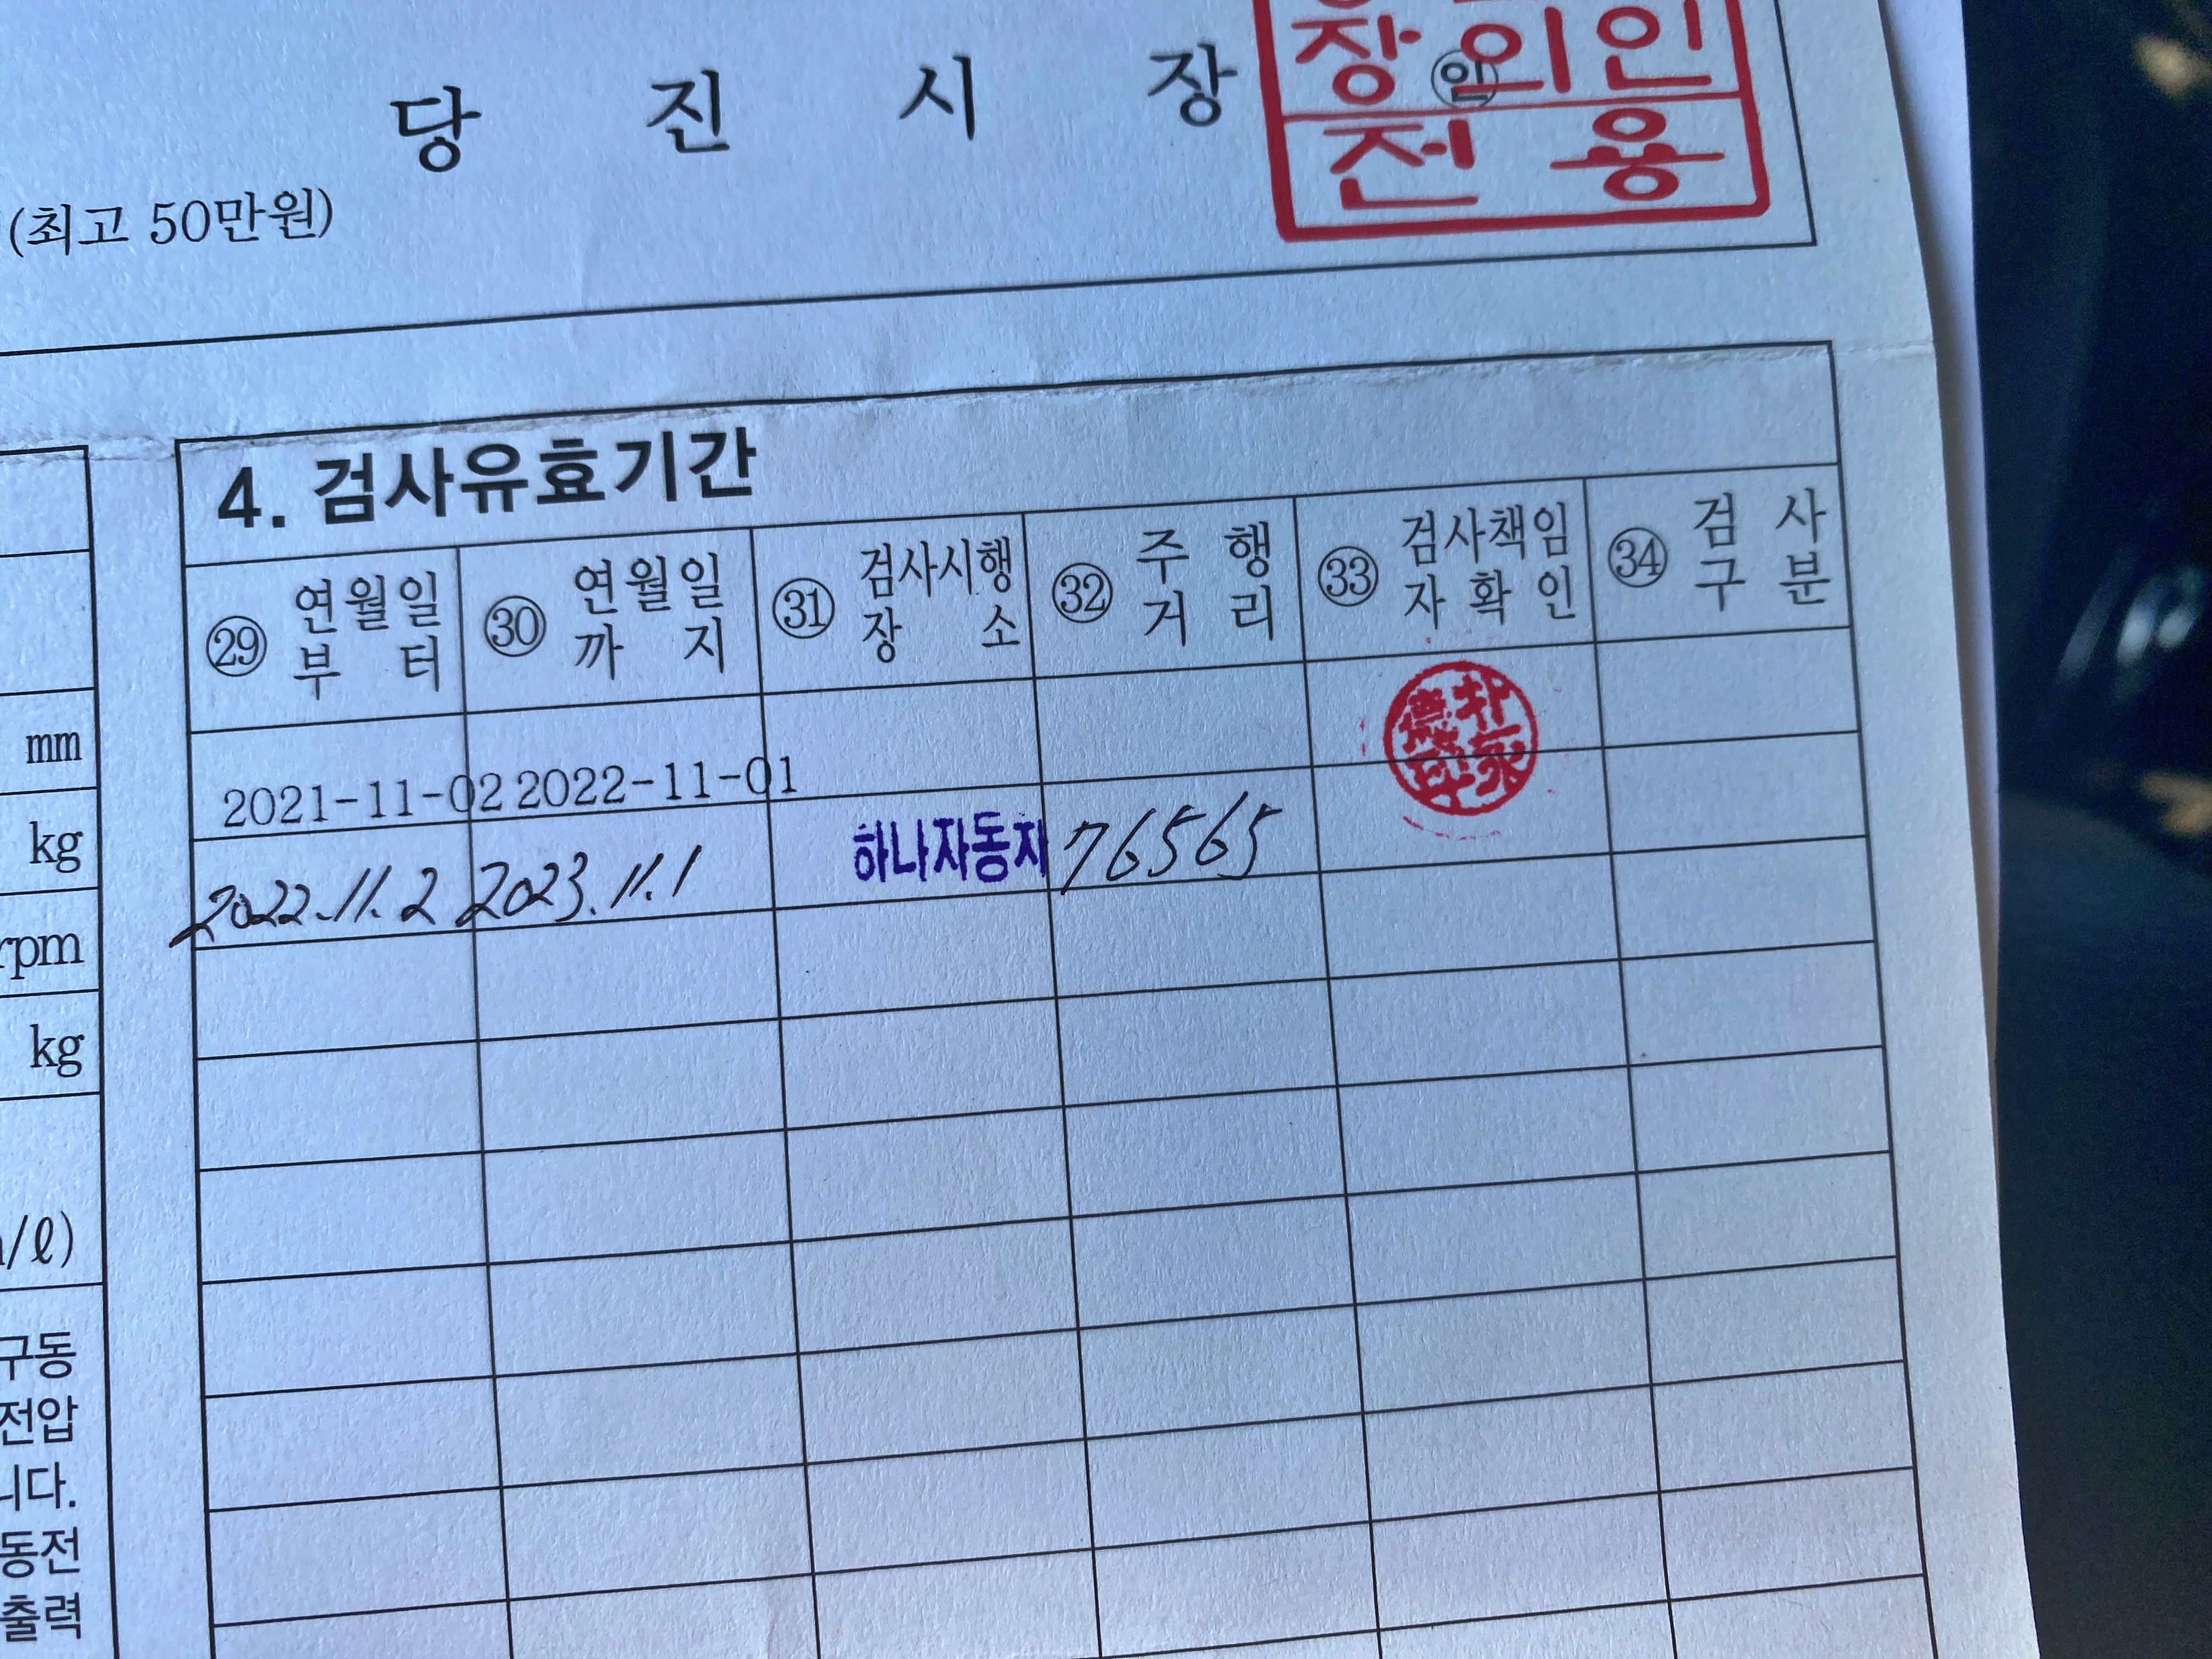 당 진 시 장 ㊞
장의인
전용
(최고 50만원)
4. 검사유효기간
㉙ 연월일부터 ㉚ 연월일까지 ㉛ 검사시행장소 ㉜ 주행거리 ㉝ 검사책임자확인 ㉞ 검사구분
2021-11-02 2022-11-01
2022.11.2 2023.11.1 하나자동차 76565
mm
kg
rpm
kg
/ℓ)
구동
전압
니다.
동전
출력